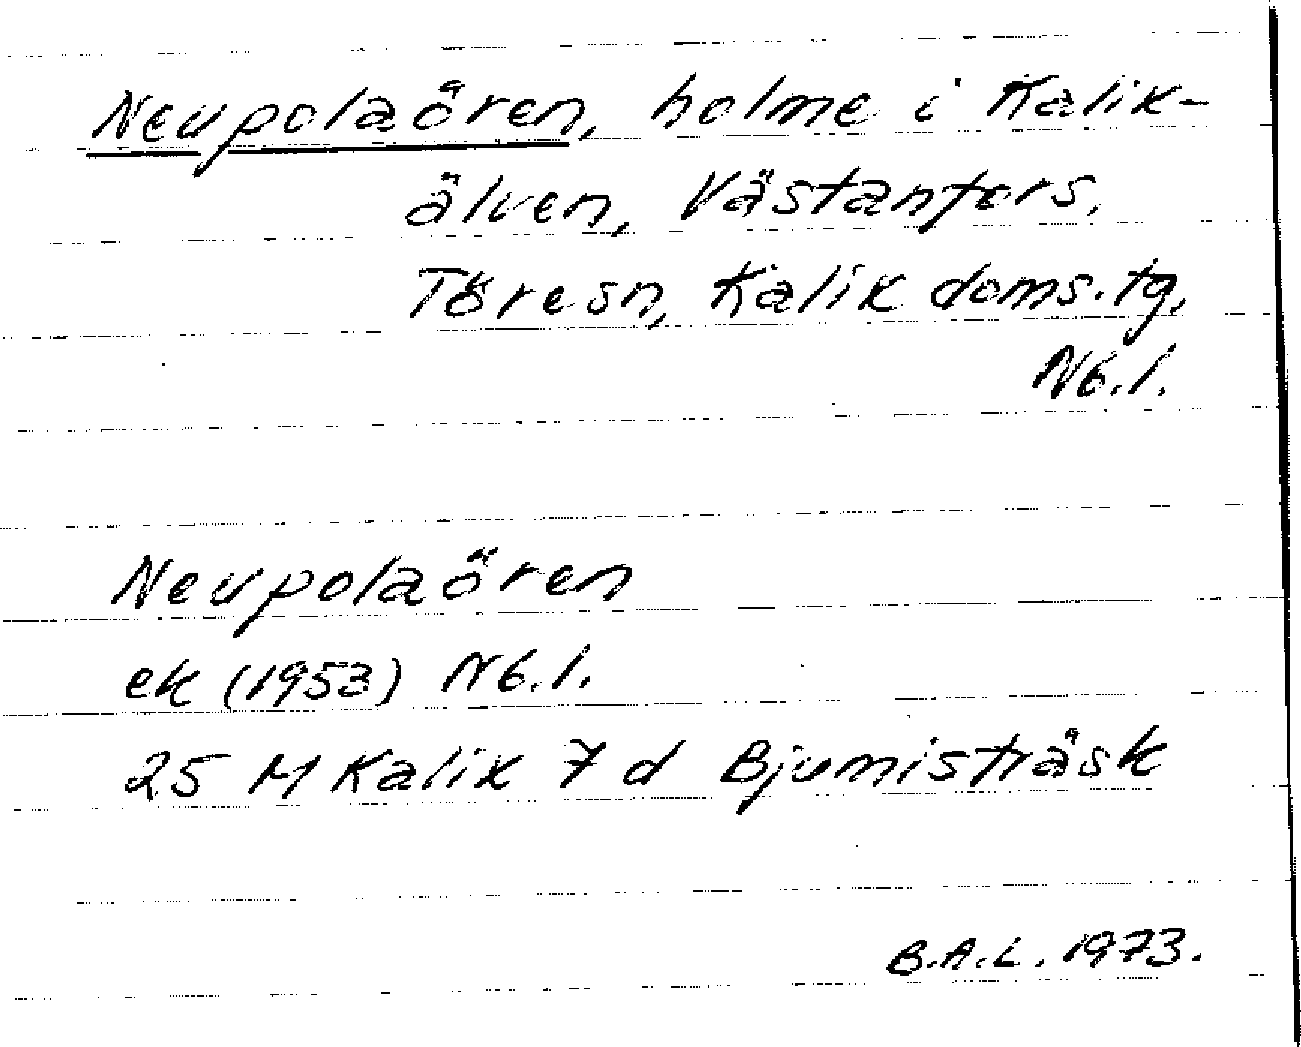 Neupolaören, holme i Kalix-
älven, Västanfors,
Töresn, Kalix doms.tg,
Nb.l.
Neupolaören
ek (1953) Nb.l.
25 M Kalix 7 d Bjumisträsk
B.A.L. 1973.